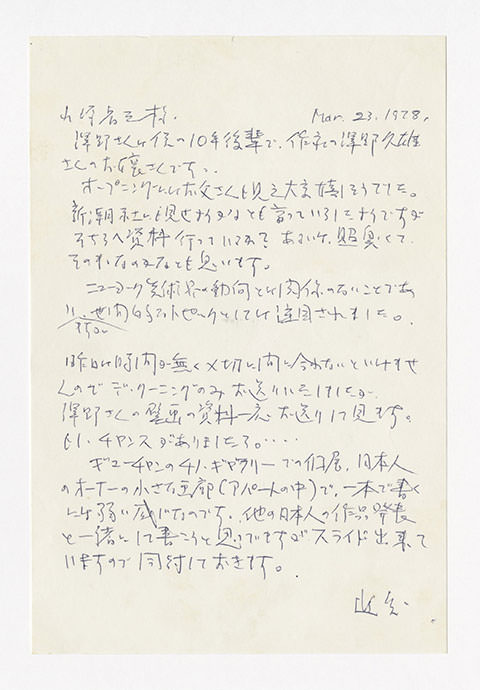 Mar. 23. 1978.
澤野さんは僕の10年後輩で、作家の澤野久雄
さんのお嬢さんです。
オープニングにはお父さんも見え大変嬉しそうでした。
新潮社にも見せようかなとも言っていらしたようですが
そちらへ資料行っているか
とも思います。
ニューヨーク美術界の動向とは関係のないことであ
トピックとしては注目されました。
昨日は時間が無く〆切に間に合わないといけませ
んのでデ・クーニングのみお送りいたしましたが
澤野さんの壁画の資料一応お送りして見ます。
もし、チャンスがありましたら。・・・・
ギューチャンのチノ・ギャラリーでの個展、日本人
のオーナーの小さな画廊(アパートの中)で、一本で書く
には弱い感じなのです。他の日本人の作品発表
と一緒にして書こうと思うのですがスライド出来て
いますので同封しておきます。